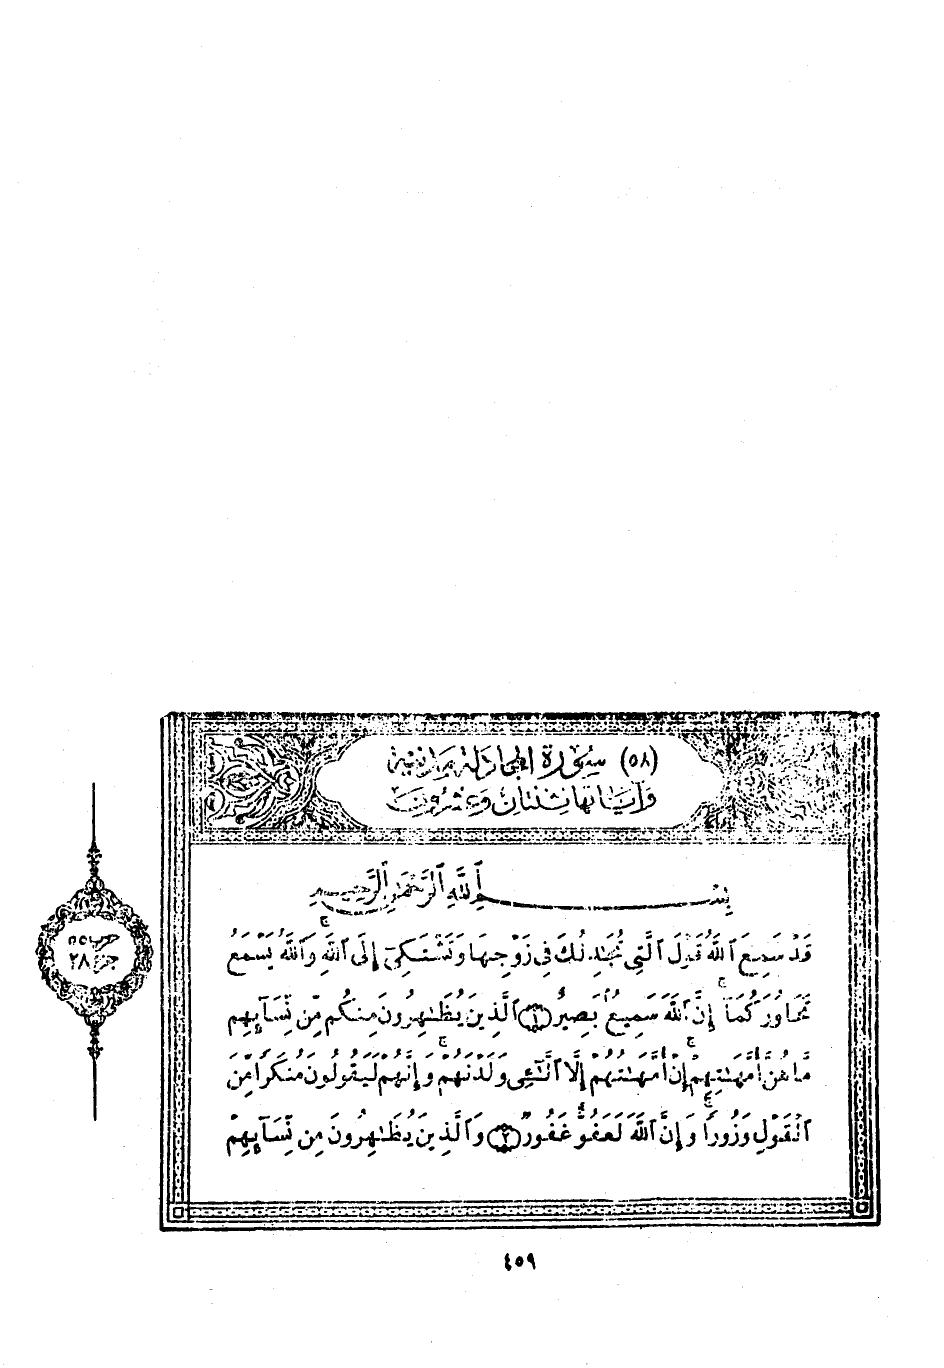 (٥٨) سورة المجادلة مدنية
وآياتها ثنتان وعشرون
بِسْمِ ٱللَّهِ ٱلرَّحْمَٰنِ ٱلرَّحِيمِ
قَدْ سَمِعَ ٱللَّهُ قَوْلَ ٱلَّتِى تُجَٰدِلُكَ فِى زَوْجِهَا وَتَشْتَكِىٓ إِلَى ٱللَّهِ ۚ وَٱللَّهُ يَسْمَعُ
تَحَاوُرَكُمَآ ۚ إِنَّ ٱللَّهَ سَمِيعٌۢ بَصِيرٌ ١ ٱلَّذِينَ يُظَٰهِرُونَ مِنكُم مِّن نِّسَآئِهِم
مَّا هُنَّ أُمَّهَٰتِهِمْ ۚ إِنْ أُمَّهَٰتُهُمْ إِلَّا ٱلَّٰٓـِٔى وَلَدْنَهُمْ ۚ وَإِنَّهُمْ لَيَقُولُونَ مُنكَرًا مِّنَ
ٱلْقَوْلِ وَزُورًا ۚ وَإِنَّ ٱللَّهَ لَعَفُوٌّ غَفُورٌ ٢ وَٱلَّذِينَ يُظَٰهِرُونَ مِن نِّسَآئِهِمْ
حزب ٥٥
جزء ٢٨
٤٥٩